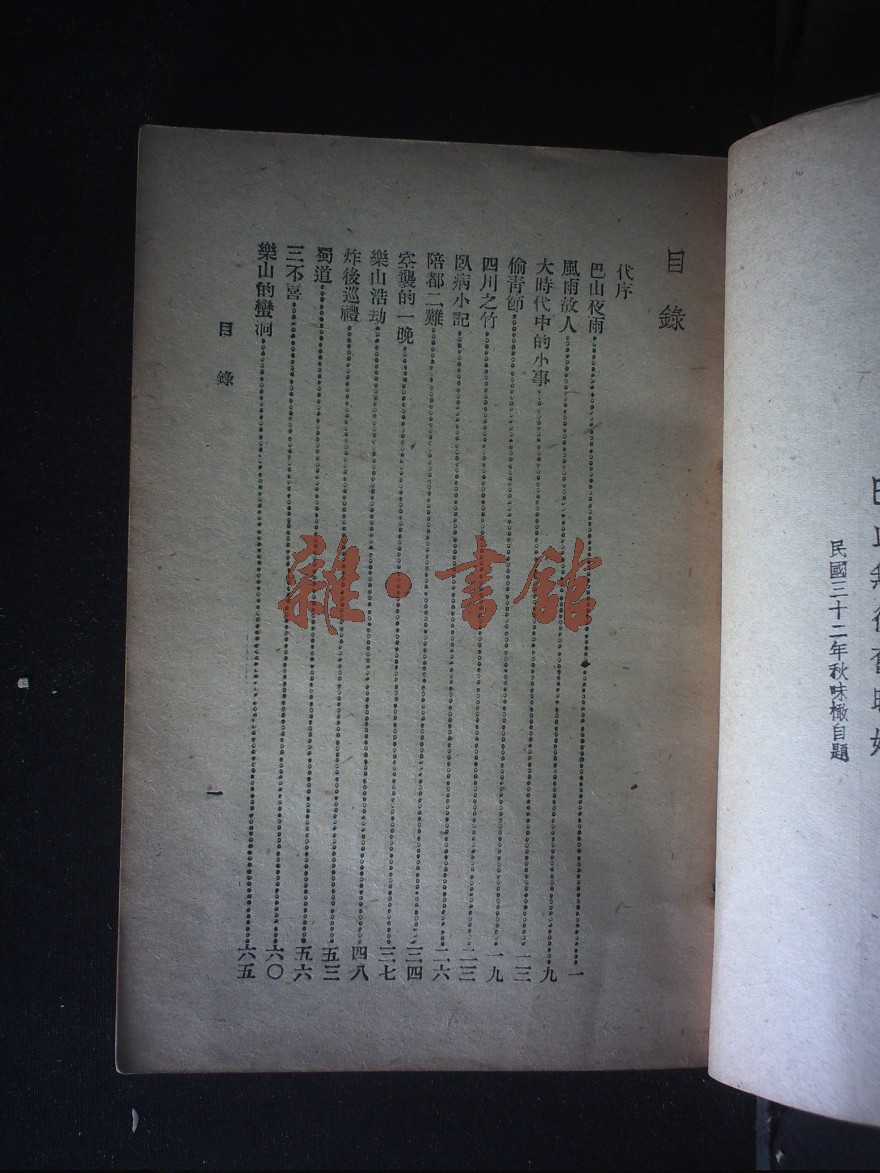 民國三十二年秋味橄自題
目錄
代序
巴山夜雨 一
風雨故人 九
大時代中的小事 一三
偷青節 一九
四川之竹 二三
臥病小記 二六
陪都二難 三四
空襲的一晚 三七
樂山浩劫 四八
炸後巡禮 五三
蜀道 五六
三不喜 六〇
樂山的蠻洞 六五
目錄
一
雜·書館